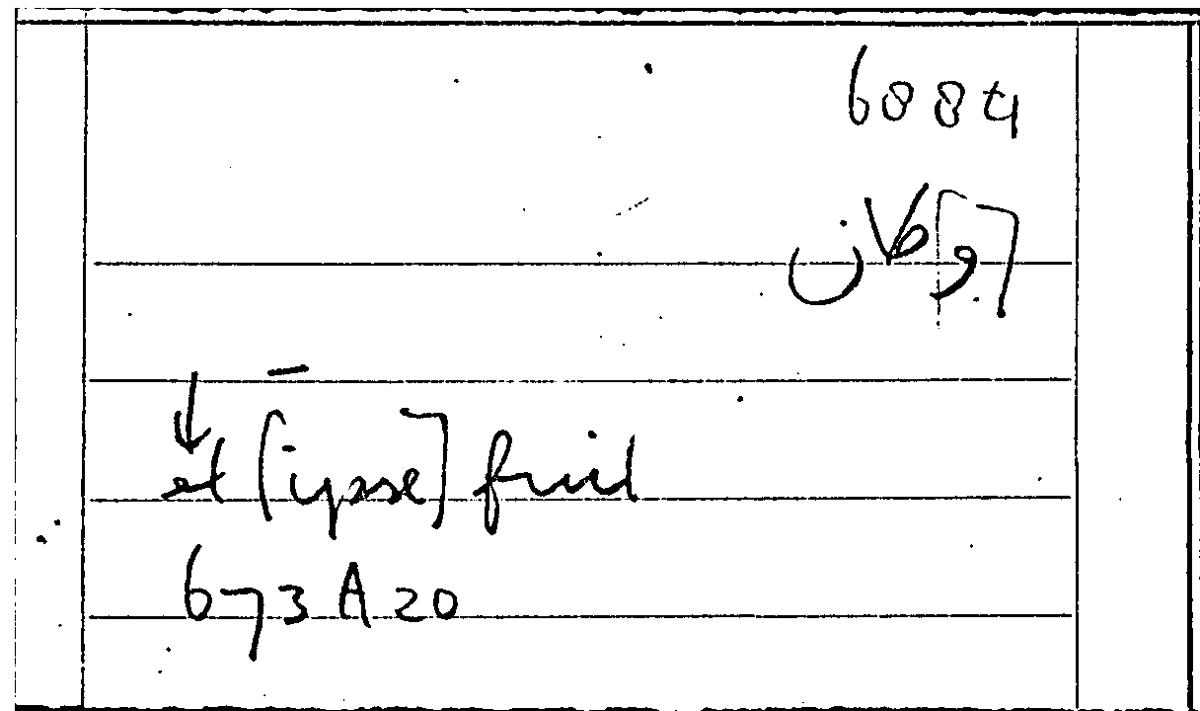 6884
[و]كان
et [ipse] fuit
673 A 20